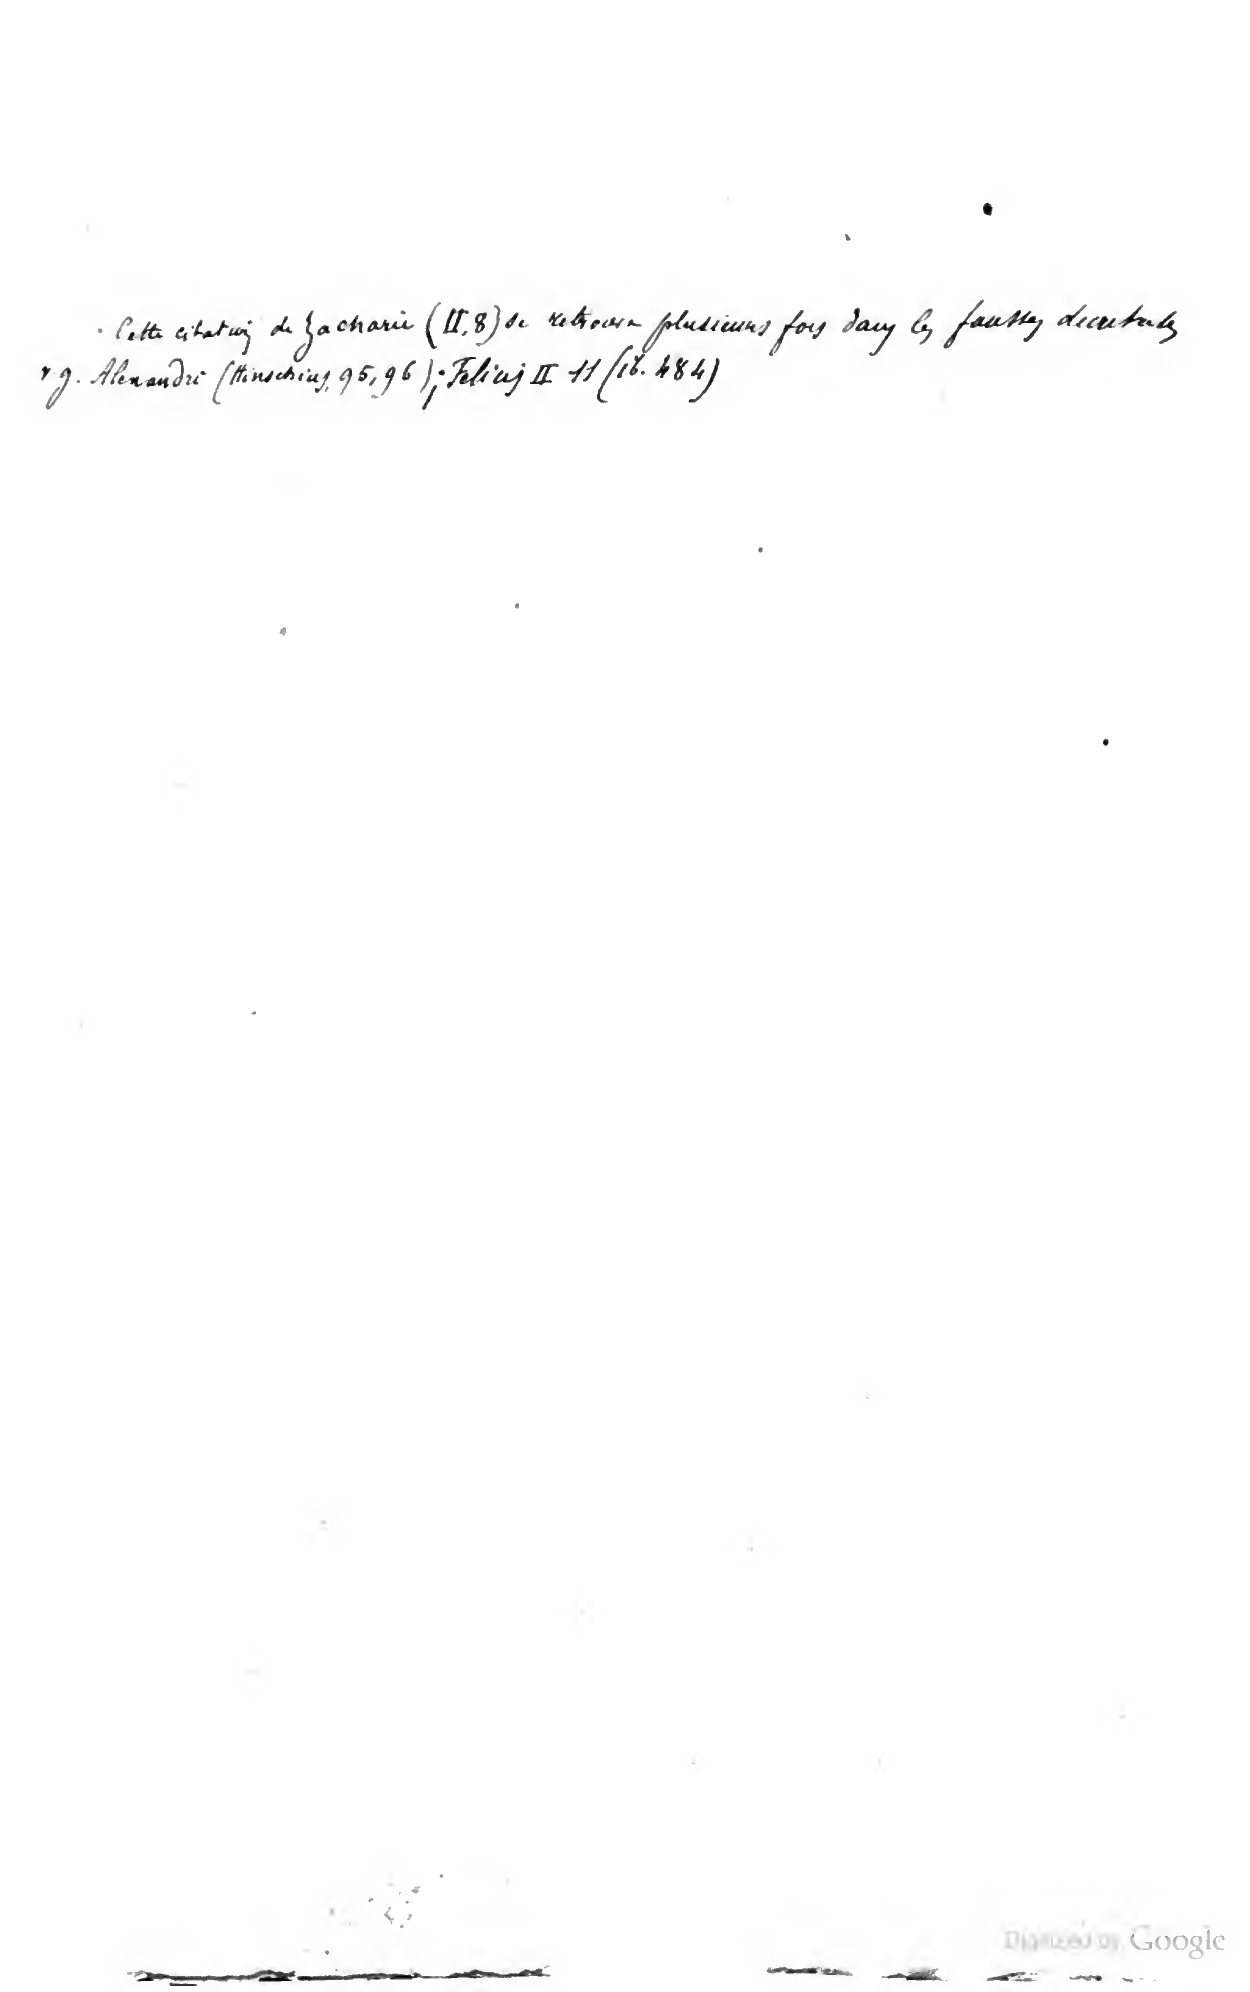 Cette citation de Zacharie (II, 8) se retrouve plusieurs fois dans les fausses decretales
v g. Alexandre (Hinschius, 95, 96); Felius II 11 (ib. 484)
Digitized by Google